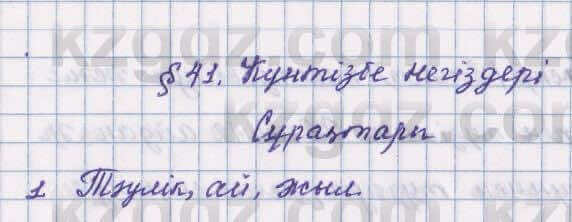 § 41. Күнтізбе негіздері
Сұрақтары
1 Тәулік, ай, жыл